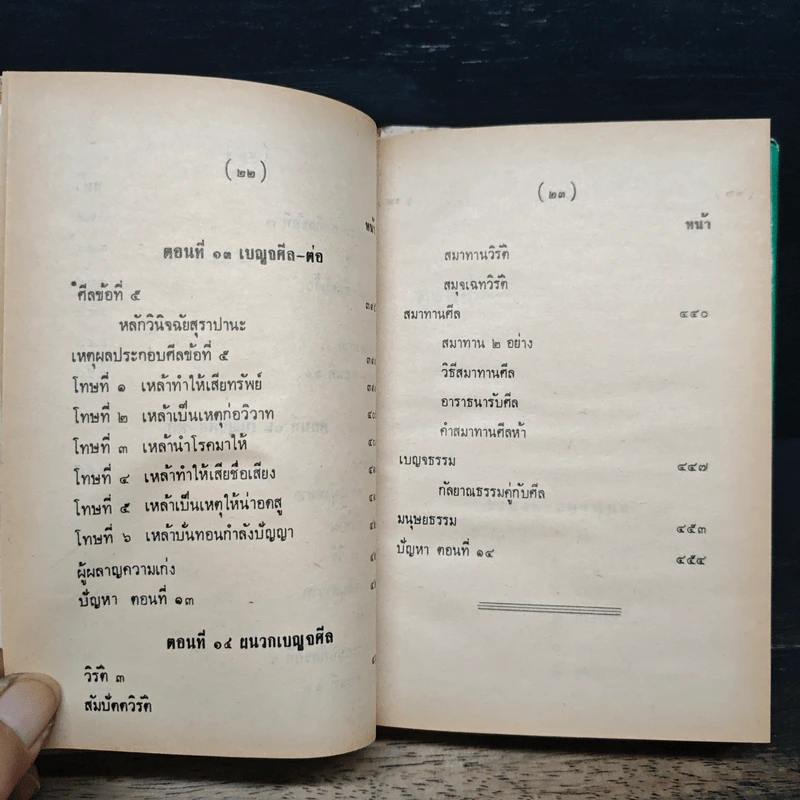 (๒๒)
หน้า
ตอนที่ ๑๓ เบญจศีล-ต่อ
ศีลข้อที่ ๕
หลักวินิจฉัยสุราปานะ
เหตุผลประกอบศีลข้อที่ ๕
โทษที่ ๑ เหล้าทำให้เสียทรัพย์
โทษที่ ๒ เหล้าเป็นเหตุก่อวิวาท
โทษที่ ๓ เหล้านำโรคมาให้
โทษที่ ๔ เหล้าทำให้เสียชื่อเสียง
โทษที่ ๕ เหล้าเป็นเหตุให้น่าอดสู
โทษที่ ๖ เหล้าบั่นทอนกำลังปัญญา
ผู้ผลาญความเก่ง
ปัญหา ตอนที่ ๑๓
ตอนที่ ๑๔ ผนวกเบญจศีล
วิรัติ ๓
สัมปัตตวิรัติ
(๒๓)
หน้า
สมาทานวิรัติ
สมุจเฉทวิรัติ
สมาทานศีล ๔๔๐
สมาทาน ๒ อย่าง
วิธีสมาทานศีล
อาราธนารับศีล
คำสมาทานศีลห้า
เบญจธรรม ๔๔๗
กัลยาณธรรมคู่กับศีล
มนุษยธรรม ๔๕๓
ปัญหา ตอนที่ ๑๔ ๔๕๔